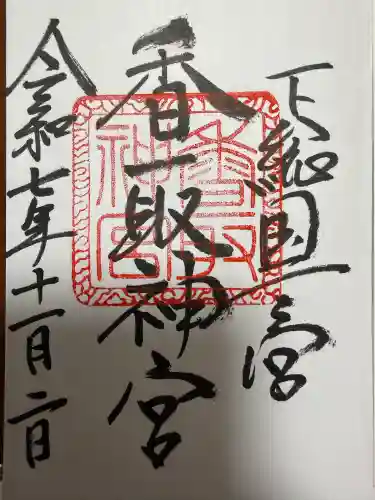 下総国一宮
香取神宮
令和七年十一月二日
香取
神宮